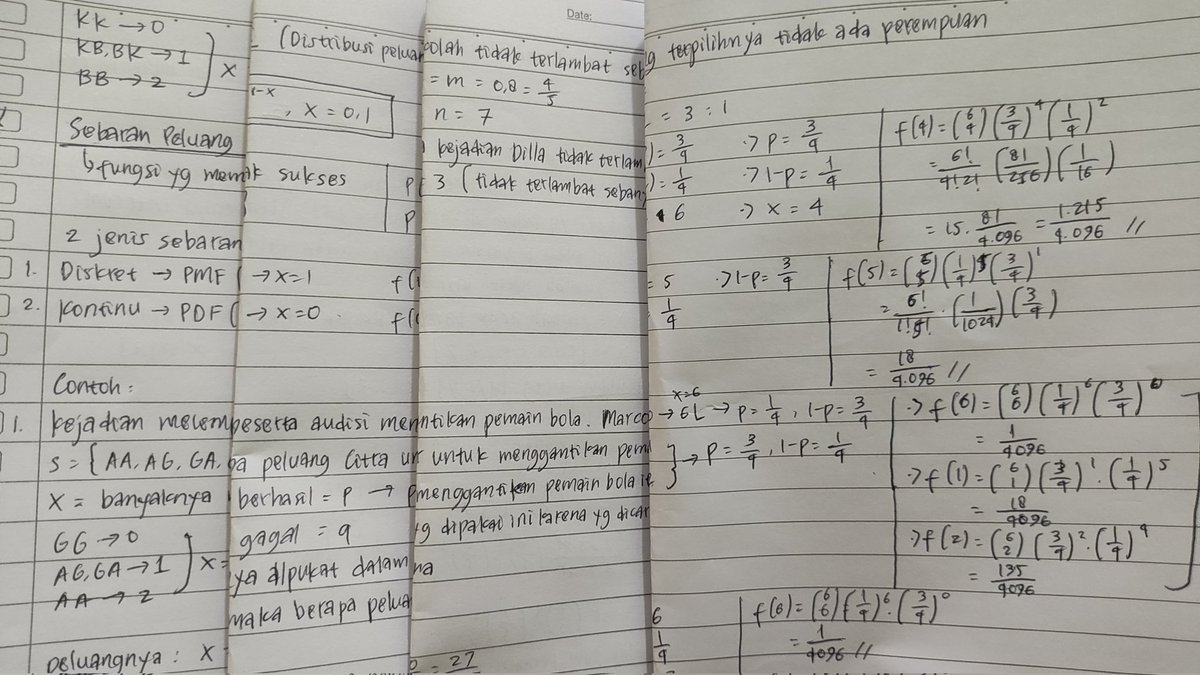 KK → 0
KB, BK → 1
BB → 2
} X
Sebaran Peluang
↳ fungsi yg mem
2 jenis sebaran
1. Diskret → PMF (
2. Kontinu → PDF (
Contoh :
1. kejadian melem
S = { AA, AG, GA,
X = banyaknya
GG → 0
AG, GA → 1
AA → 2
} X =
peluangnya : X
(Distribusi peluan
1-x
, X = 0,1
k sukses
p
p
→ x = 1
f(
→ x = 0
f(
peserta audisi men
pa peluang Citta un
berhasil = p → p
gagal = q
ya dipukat dalam
maka berapa pelua
Date:
olah tidak terlambat seb
= m = 0,8 = 4/5
n = 7
kejadian Dilla tidak terlam
3 (tidak terlambat seban
ntikan pemain bola. Marco
untuk menggantikan pem
menggantikan pemain bola it
g dipakai ini karena yg dicar
na
= 27
g terpilihnya tidak ada perempuan
= 3 : 1
) = 3/4 → p = 3/4
) = 1/4 → 1-p = 1/4
6 → x = 4
f(4) = (6 4) (3/4)^4 (1/4)^2
= 6!/4!2! (81/256) (1/16)
= 15 . 81/4.096 = 1.215/4.096 //
= 5 → 1-p = 3/4
1/4
f(5) = (6 5) (1/4)^5 (3/4)^1
= 6!/1!5! . (1/1024) (3/4)
= 18/4.096 //
x=6
→ 6L → p = 1/4, 1-p = 3/4
} → p = 3/4, 1-p = 1/4
→ f(6) = (6 6) (1/4)^6 (3/4)^0
= 1/4096
→ f(1) = (6 1) (3/4)^1 . (1/4)^5
= 18/4096
→ f(2) = (6 2) (3/4)^2 . (1/4)^4
= 135/4096
6
1/4
f(6) = (6 6) (1/4)^6 . (3/4)^0
= 1/4096 //